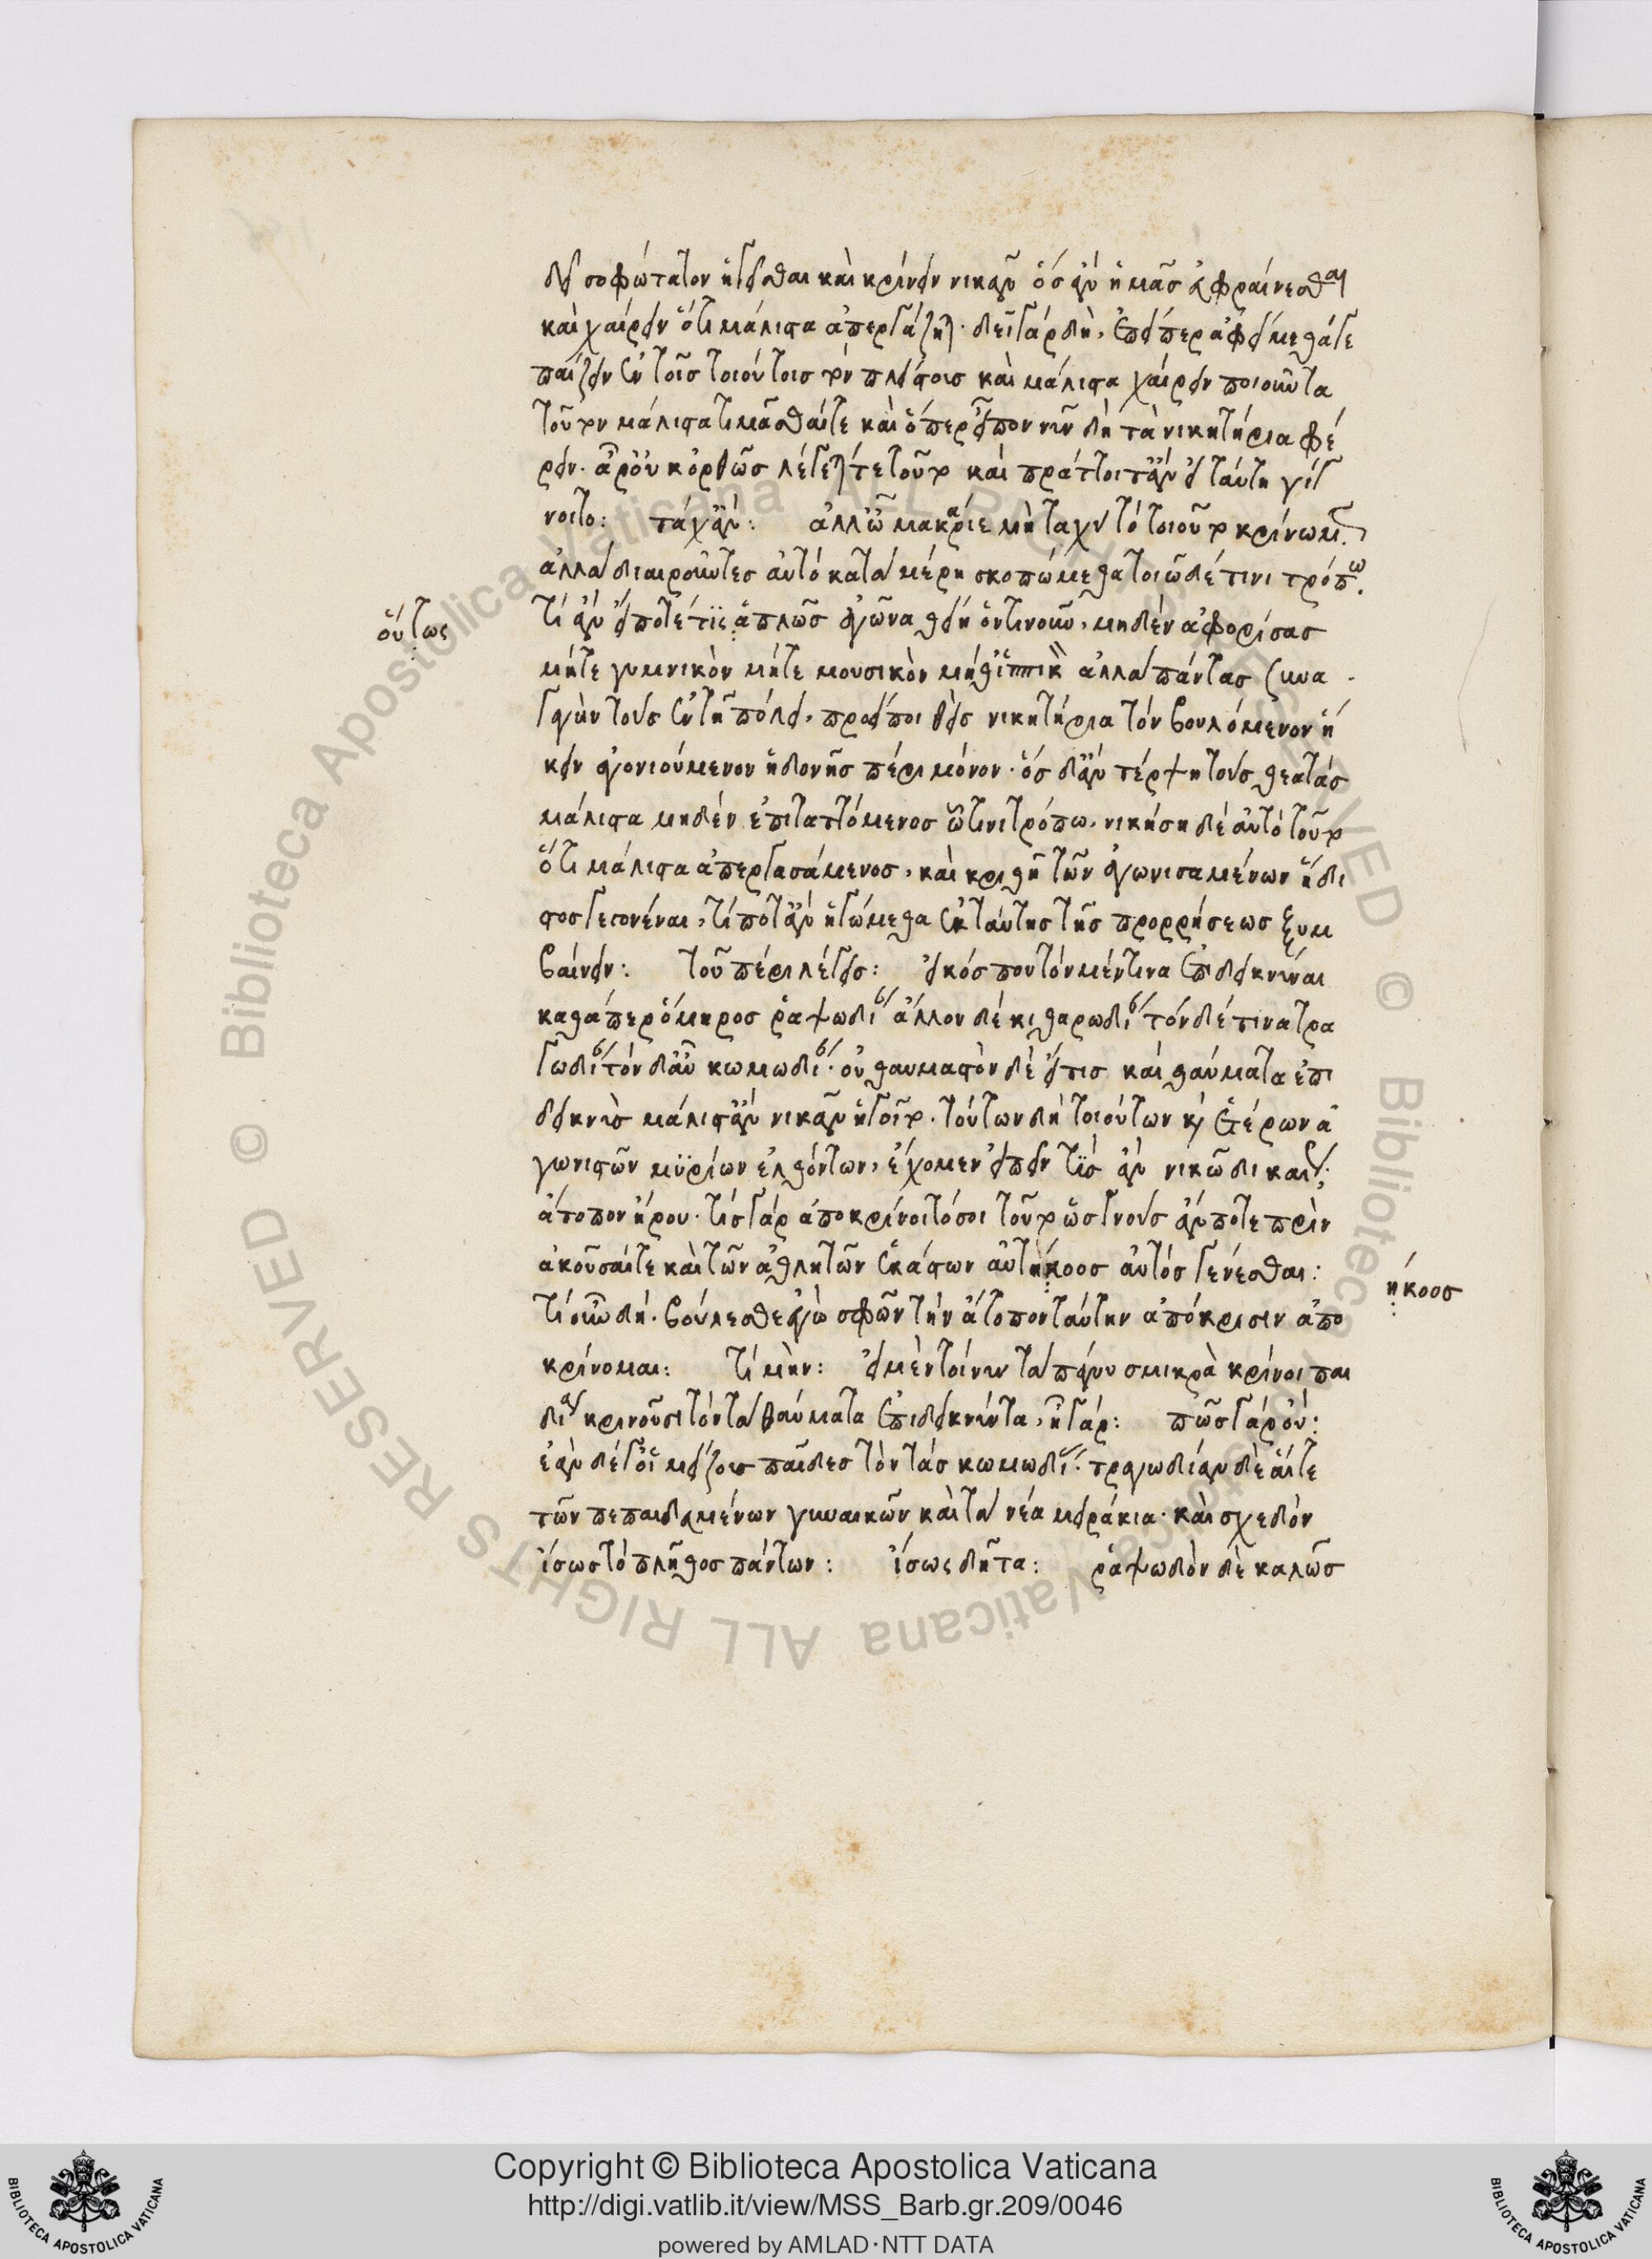 δεῖ σοφώτατον ἡγεῖσθαι καὶ κρίνειν νικᾶν ὃς ἂν ἡμᾶς εὐφραίνεσθαι
καὶ χαίρειν ὅτι μάλιστα ἀπεργάζηται· δεῖ γὰρ δὴ, ἐπείπερ ἀφείμεθά γε
παίζειν ἐν τοῖς τοιούτοις τὸν πλείστους καὶ μάλιστα χαίρειν ποιοῦντα
τοῦτον μάλιστα τιμᾶσθαί τε καὶ ὅπερ εἶπον νῦν δὴ τὰ νικητήρια φέ
ρειν· ἆρ' οὐκ ὀρθῶς λέγεταί τε τοῦτο καὶ πράττοιτ' ἂν εἰ ταύτῃ γίγ
νοιτο: τάχ' ἄν: ἀλλ' ὦ μακάριε μὴ ταχὺ τὸ τοιοῦτο κρίνωμεν
ἀλλὰ διαιροῦντες αὐτὸ κατὰ μέρη σκοπώμεθα τοιῷδέ τινι τρόπῳ.
οὕτως
τί ἂν εἴ ποτέ τις ἁπλῶς ἀγῶνα θείη ὁντινοῦν, μηδὲν ἀφορίσας
μήτε γυμνικὸν μήτε μουσικὸν μήθ' ἱππικὸν ἀλλὰ πάντας συνα
γαγὼν τοὺς ἐν τῇ πόλει, προείποι θεὶς νικητήρια τὸν βουλόμενον ἥ
κειν ἀγονιούμενον ἡδονῆς πέρι μόνον· ὃς δ' ἂν τέρψῃ τοὺς θεατὰς
μάλιστα μηδὲν ἐπιταττόμενος ᾧτινι τρόπῳ, νικήσῃ δὲ αὐτὸ τοῦτο
ὅτι μάλιστα ἀπεργασάμενος, καὶ κριθῇ τῶν ἀγωνισαμένων ἥδι
στος γεγονέναι, τί ποτ' ἂν ἡγώμεθα ἐκ ταύτης τῆς προρρήσεως ξυμ
βαίνειν: τοῦ πέρι λέγεις: εἰκός που τὸν μέν τινα ἐπιδεικνύναι
καθάπερ ὅμηρος ῥαψωδίαν ἄλλον δὲ κιθαρωδίαν τὸν δέ τινα τρα
γωδίαν τὸν δ' αὖ κωμωδίαν· οὐ θαυμαστὸν δὲ εἴ τις καὶ θαύματα ἐπι
δεικνὺς μάλιστ' ἂν νικᾶν ἡγοῖτο· τούτων δὴ τοιούτων καὶ ἑτέρων ἀ
γωνιστῶν μυρίων ἐλθόντων, ἔχομεν εἰπεῖν τίς ἂν νικῷ δικαίως;
ἄτοπον ἤρου· τίς γὰρ ἀποκρίνοιτό σοι τοῦτο ὡς γνοὺς ἄν ποτε πρὶν
ἀκοῦσαί τε καὶ τῶν ἀθλητῶν ἑκάστων αὐτήκοος αὐτὸς γενέσθαι:
ήκοος
τί οὖν δὴ· βούλεσθε ἐγὼ σφῶν τὴν ἄτοπον ταύτην ἀπόκρισιν ἀπο
κρίνομαι: τί μὴν: εἰ μὲν τοίνυν τὰ πάνυ σμικρὰ κρίνοι παι
δία κρινοῦσι τὸν τὰ θαύματα ἐπιδεικνύντα, ἦ γάρ: πῶς γὰρ οὔ:
ἐὰν δέ γ' οἱ μείζους παῖδες τὸν τὰς κωμωδίας· τραγωδίαν δὲ αἵ τε
τῶν πεπαιδευμένων γυναικῶν καὶ τὰ νέα μειράκια· καὶ σχεδὸν
ἴσως τὸ πλῆθος πάντων: ἴσως δῆτα: ῥαψωδὸν δὲ καλῶς
Copyright © Biblioteca Apostolica Vaticana
http://digi.vatlib.it/view/MSS_Barb.gr.209/0046
powered by AMLAD·NTT DATA
BIBLIOTECA APOSTOLICA VATICANA
BIBLIOTECA APOSTOLICA VATICANA
© Biblioteca Apostolica Vaticana ALL RIGHTS RESERVED © Biblioteca Apostolica Vaticana ALL RIGHTS RESERVED